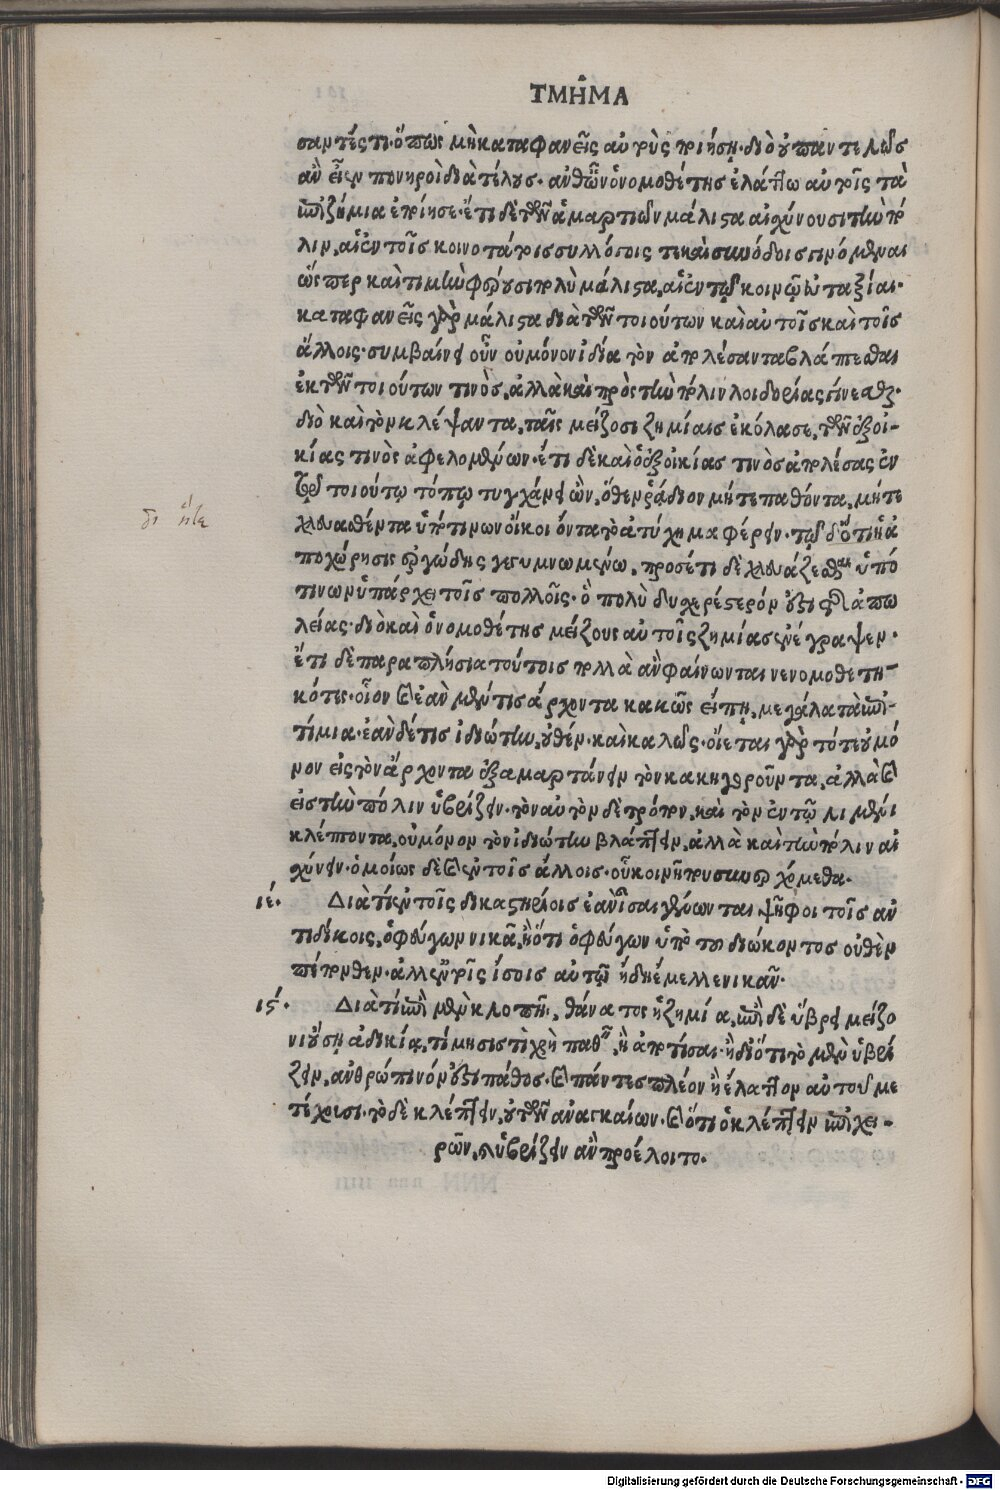 ΤΜΗ͂ΜΑ
σαντές τι· ὅπως μὴ καταφανεῖς αὐτοὺς ποιήσῃ· διὸ οὐ παντελῶς
ἂν εἶεν πονηροὶ διὰ τέλους. ἀνθῶν ὁ νομοθέτης ἐλάττω αὐτοῖς τὰ
ἐπιζήμια ἐποίησε· ἔτι δὲ τῶν ἁμαρτιῶν μάλιστα αἰσχύνουσι τὴν πό
λιν, αἱ ἐν τοῖς κοινοτάτοις συλλόγοις τε καὶ συνόδοις γινόμεναι
ὥσπερ καὶ τιμὴν φέρουσι πολὺ μάλιστα, αἱ ἐν τῷ κοινῷ εὐταξίαι·
καταφανεῖς γὰρ μάλιστα διὰ τῶν τοιούτων καὶ αὐτοῖς καὶ τοῖς
ἄλλοις· συμβαίνει οὖν οὐ μόνον ἰδία τὸν ἀπολέσαντα βλάπτεσθαι
ἐκ τῶν τοιούτων τινὸς, ἀλλὰ καὶ πρὸς τὴν πόλιν λοιδορίας γίνεσθαι·
διὸ καὶ τὸν κλέψαντα, ταῖς μείζοσι ζημίαις ἐκόλασε, τῶν ἐξ οἰ-
κίας τινὸς ἀφελομένων· ἔτι δὲ καὶ ὁ ἐξ οἰκίας τινὸς ἀπολέσας ἐν
τῷ τοιούτῳ τόπῳ τυγχάνει ὢν, ὅθεν ῥᾴδιον μήτε παθόντα, μήτε
χλευασθέντα ὑπό τινων οἴκοι ὄντα τὸ ἀτύχημα φέρειν· τῷ δ' ὅτι ἡ ἀ
ποχώρησις ἐργώδης γεγυμνωμένῳ, προσέτι δὲ χλευάζεσθαι ὑπό
τινων ὑπάρχει τοῖς πολλοῖς· ὃ πολὺ δυσχερέστερόν ἐστι τῆς ἀπω
λείας· διὸ καὶ ὁ νομοθέτης μείζους αὐτοῖς ζημίας ἐνέγραψεν·
ἔτι δὲ παραπλήσια τούτοις πολλὰ ἂν φαίνωνται νενομοθετη-
κότες· οἷον καὶ ἐὰν μέν τις ἄρχοντα κακῶς εἴπῃ, μεγάλα τὰ ἐπι-
τίμια· ἐὰν δέ τις ἰδιώτην, οὐθέν· καὶ καλῶς· οἴεται γὰρ τότε οὐ μό
νον εἰς τὸν ἄρχοντα ἐξαμαρτάνειν τὸν κακηγοροῦντα, ἀλλὰ καὶ
εἰς τὴν πόλιν ὑβρίζειν· τὸν αὐτὸν δὲ τρόπον, καὶ τὸν ἐν τῷ λιμένι
κλέπτοντα, οὐ μόνον τὸν ἰδιώτην βλάπτειν, ἀλλὰ καὶ τὴν πόλιν αἰ
χύνειν· ὁμοίως δὲ καὶ ἐν τοῖς ἄλλοις· οὗ κοινῇ που συνερχόμεθα.
ιέ. Διὰ τί ἐν τοῖς δικαστηρίοις ἐὰν ἴσαι γένωνται ψῆφοι τοῖς ἀν
τιδίκοις, ὁ φεύγων νικᾷ, ἢ ὅτι ὁ φεύγων ὑπὸ τοῦ διώκοντος οὐθὲν
πέπονθεν· ἀλλ' ἐν τοῖς ἴσοις αὐτῷ ἤδη ἔμελλε νικᾶν·
ιϛ́. Διὰ τί ἐπὶ μὲν κλοπῇ, θάνατος ἡ ζημία, ἐπὶ δὲ ὕβρει μείζο
νι οὔσῃ ἀδικίᾳ, τίμησις τί χρὴ παθεῖν, ἢ ἀποτίσαι· ἢ διότι τὸ μὲν ὑβρί
ζειν, ἀνθρώπινόν ἐστι πάθος· καὶ πάντες πλέον ἢ ἔλαττον αὐτοῦ με
τέχουσι· τὸ δὲ κλέπτειν, οὐ τῶν ἀναγκαίων· καὶ ὅτι ὁ κλέπτειν ἐπιχει-
ρῶν, καὶ ὑβρίζειν ἂν προέλοιτο.
Digitalisierung gefördert durch die Deutsche Forschungsgemeinschaft - DFG